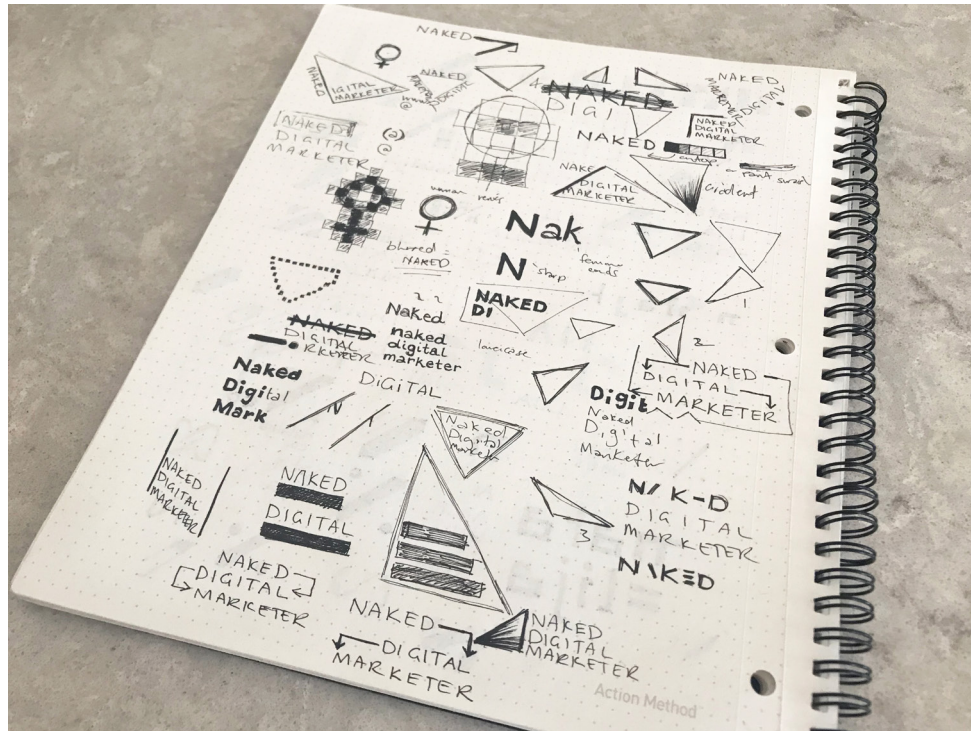 NAKED
NAKED
DIGITAL
MARKETER
NAKED
DIGITAL
@
NAKED
DIGI
NAKED
MARKETER
DIGITAL
NAKED
DIGITAL
MARKETER
NAKED
DIGITAL
MARKETER
@
@
NAKED
NAKED
DIGITAL
MARKETER
Gradient
woman
blurred =
NAKED
Nak
femme
ends
N
sharp
1
NAKED
DI
Naked
lowercase
2
NAKED
DIGITAL
RKETER
naked
digital
marketer
NAKED
DIGITAL
MARKETER
Naked
Digital
Mark
DIGITAL
N
Digit
Naked
Digital
Marketer
Naked
Digital
Marketer
NAKED
DIGITAL
MARKETER
NAKED
DIGITAL
3
N/ K-D
DIGITAL
MARKETER
N\KED
NAKED
DIGITAL
MARKETER
NAKED
DIGITAL
MARKETER
NAKED
DIGITAL
MARKETER
Action Method